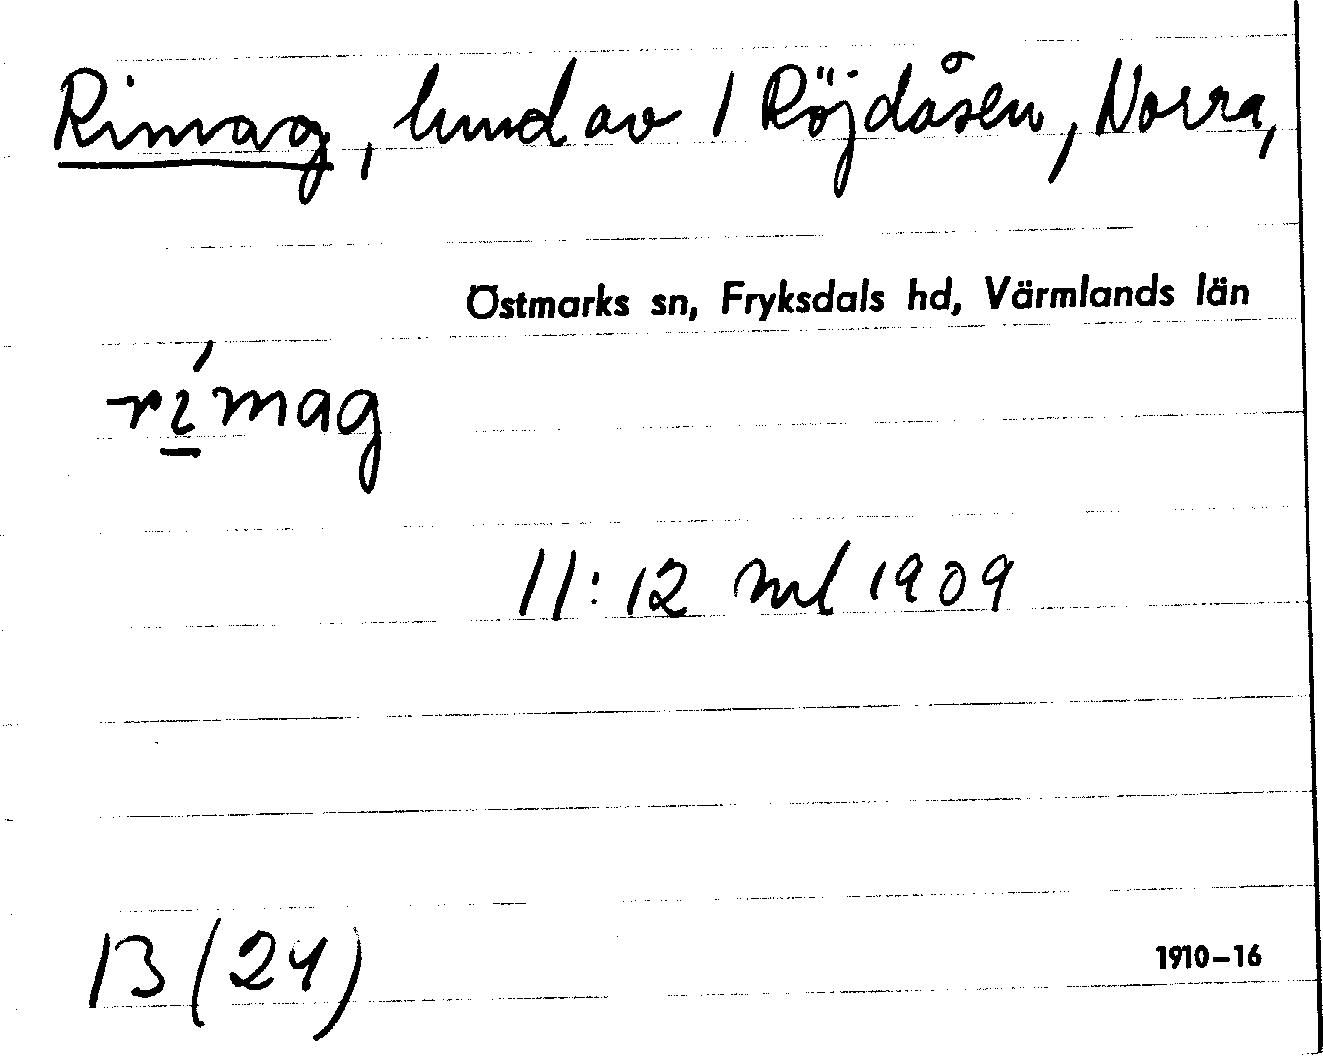 Rimag, lund av 1 Röjdåsen, Norra,
Östmarks sn, Fryksdals hd, Värmlands län
rímag
11:12 ml 1909
B (24)
1910-16